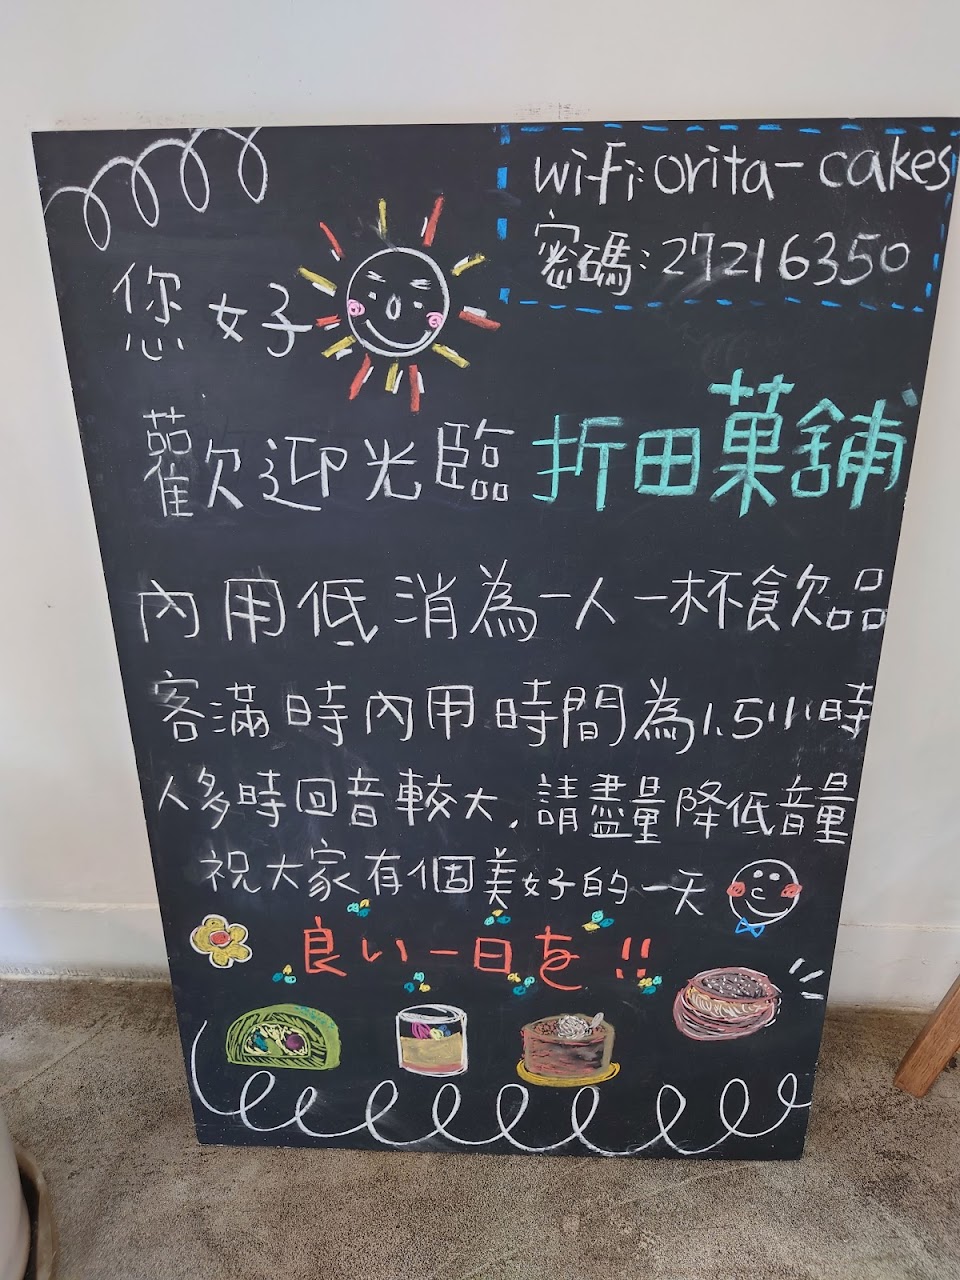 wifi: orita-cakes
密碼: 27216350
您好
歡迎光臨 折田菓舖
內用低消為一人一杯飲品
客滿時內用時間為1.5小時
人多時回音較大, 請盡量降低音量
祝大家有個美好的一天
良い一日を!!